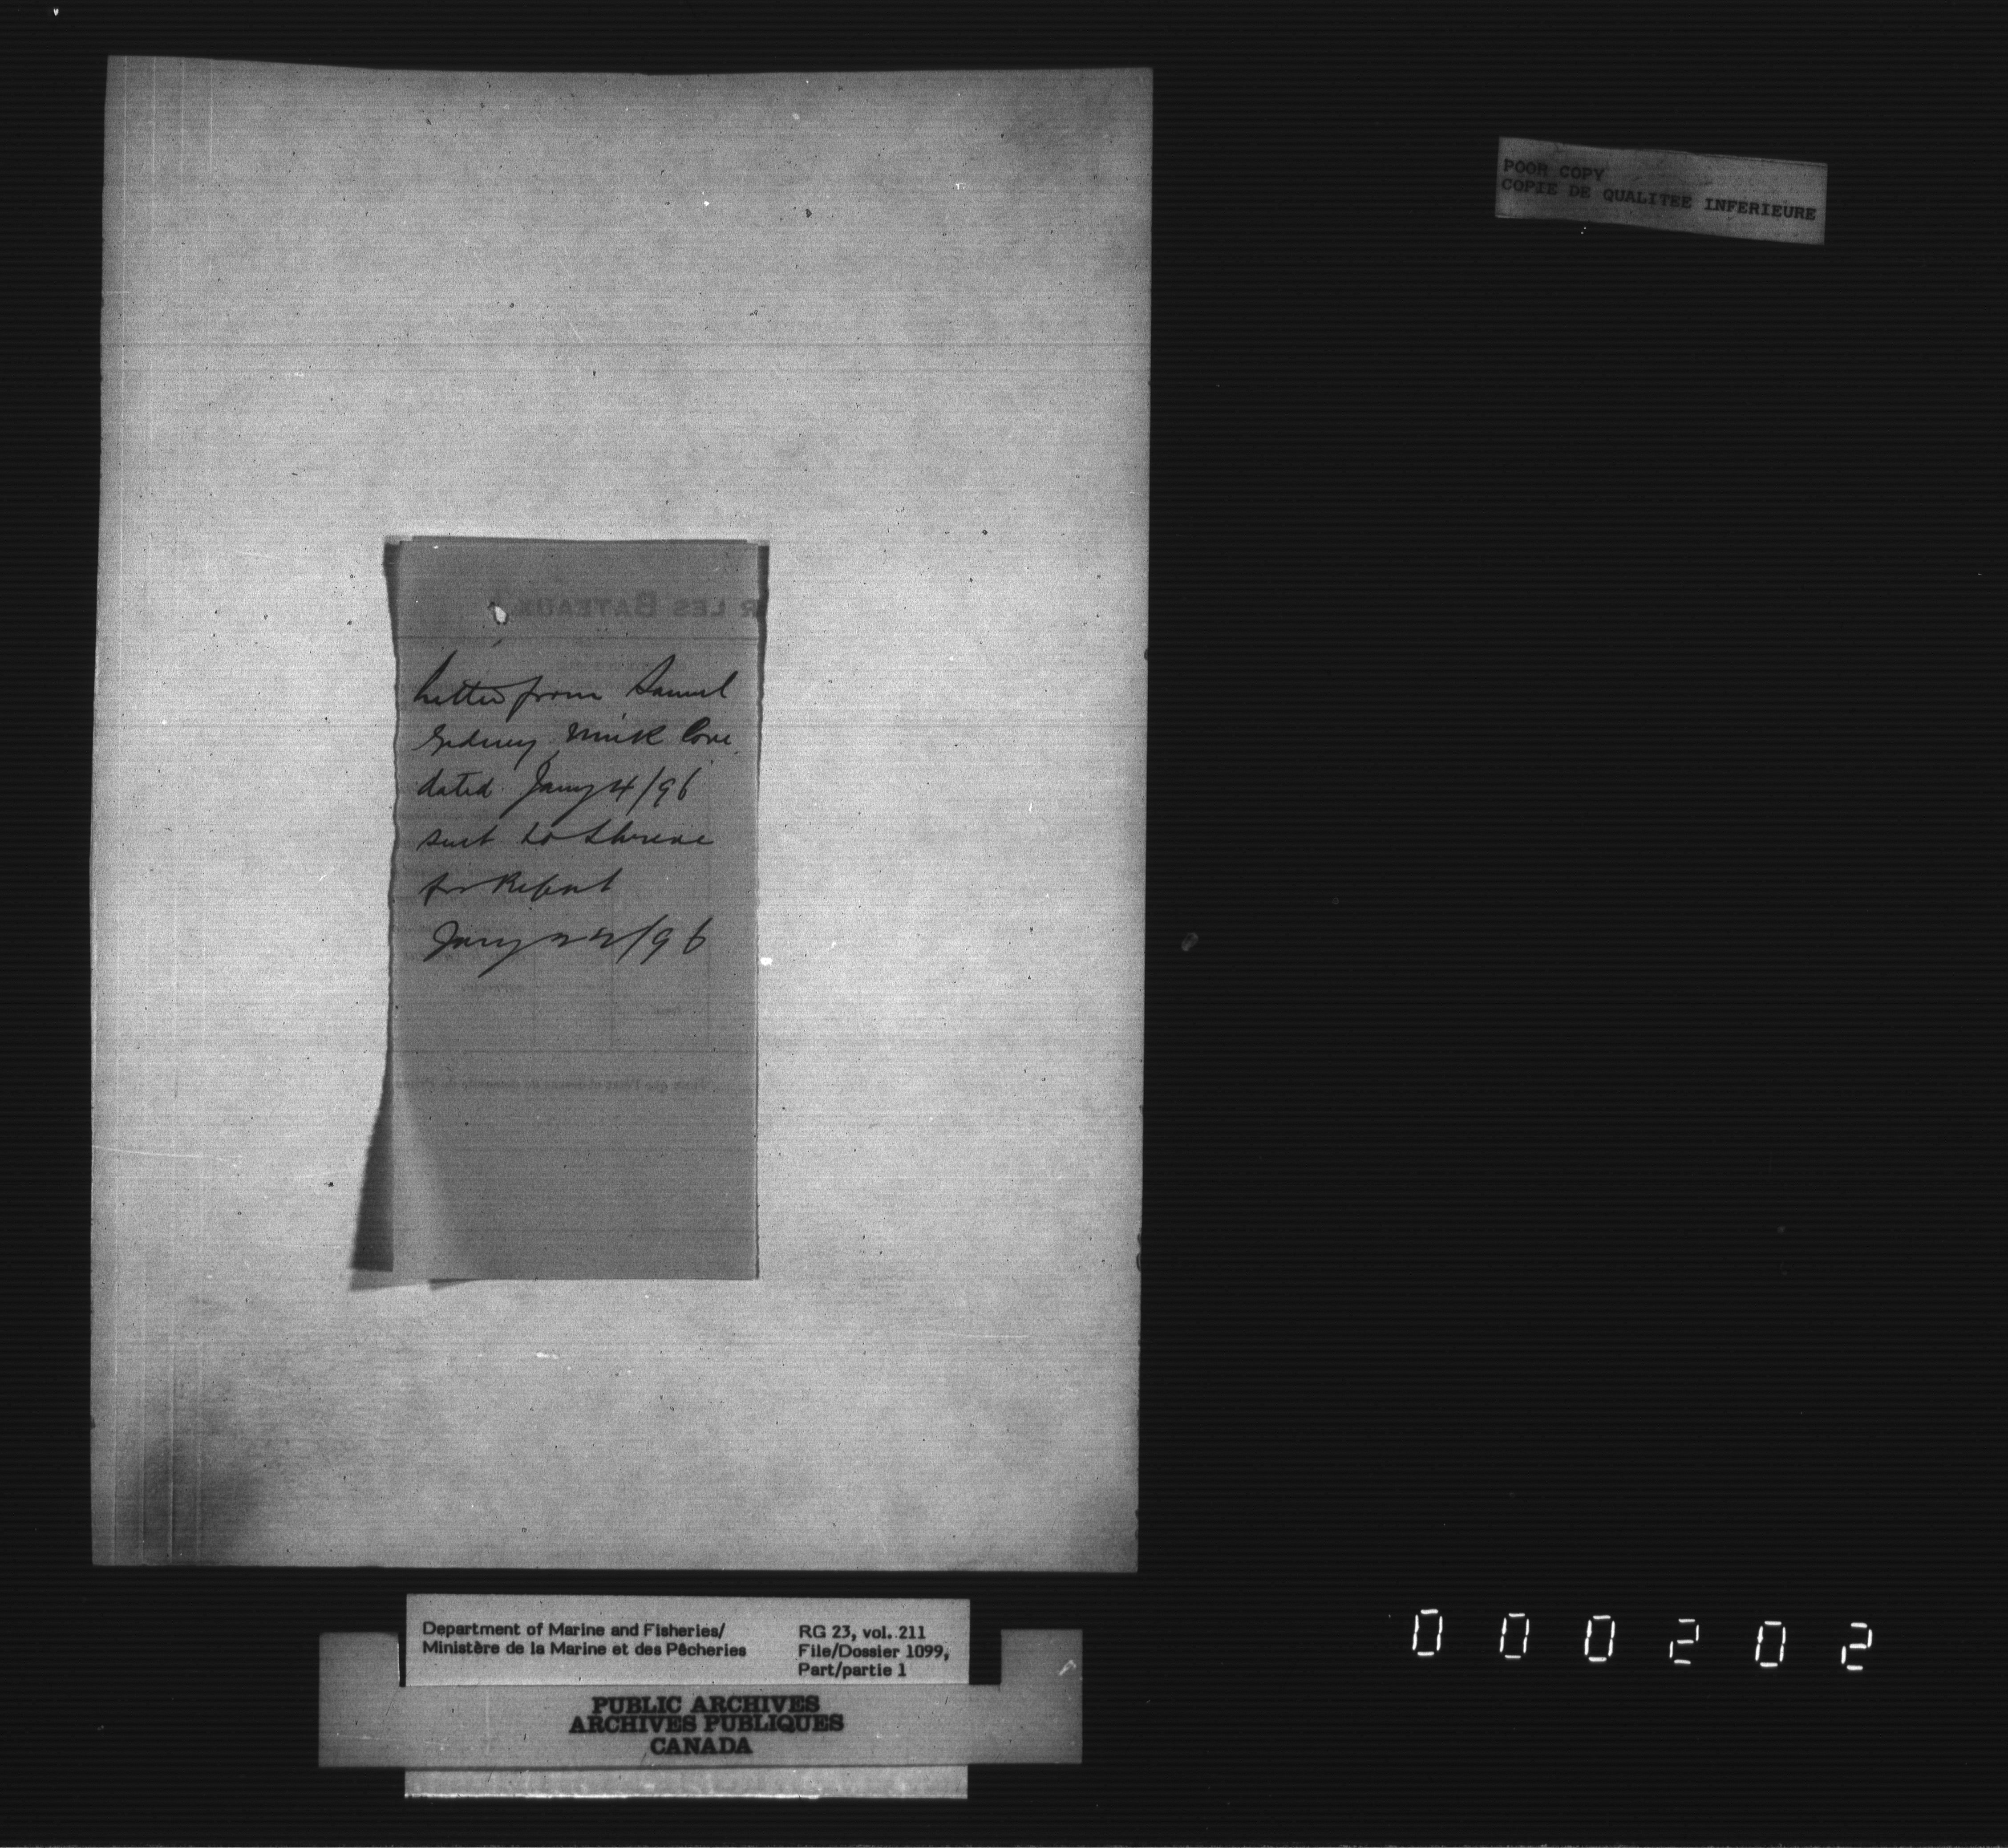 POOR COPY
COPIE DE QUALITEE INFERIEURE
R LES BATEAUX
Letter from Samuel
Gidney, Mink Cove,
dated Jany 4/96
sent to Shreve
for Report
Jany 22/96
Department of Marine and Fisheries/
Ministère de la Marine et des Pêcheries
RG 23, vol. 211
File/Dossier 1099,
Part/partie 1
PUBLIC ARCHIVES
ARCHIVES PUBLIQUES
CANADA
000202